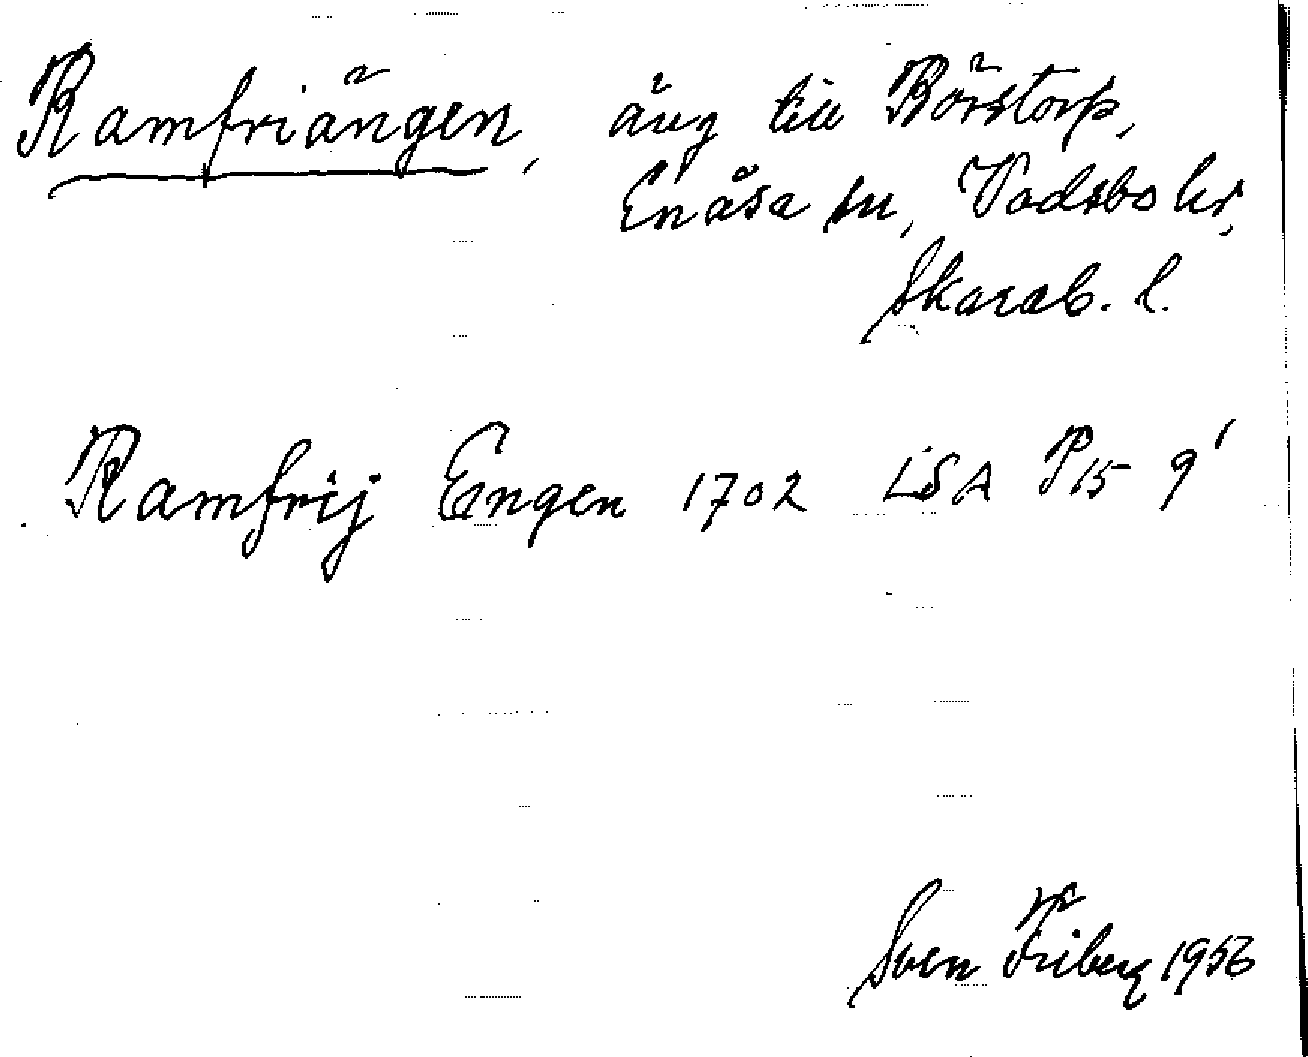 Ramfriängen, äng till Börstorp,
Enåsa sn, Vadsbo hd,
Skarab. l.
Ramfrij Engen 1702 LSA P15 9¹
Sven Friberg 1956